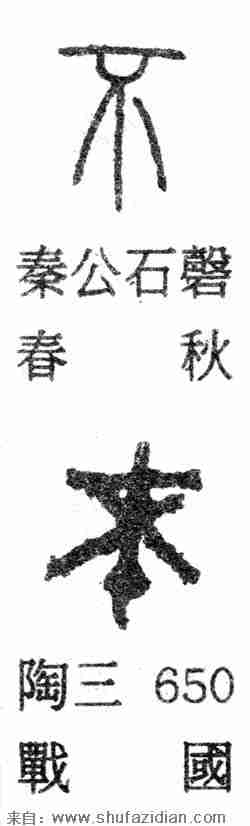 不
秦公石磬
春秋
不
陶三 650
戰國
来自：www.shufazidian.com